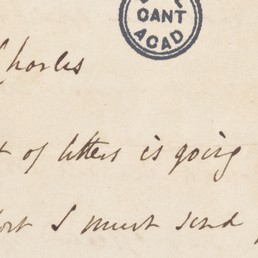 CANT
ACAD
Charles
of letters is going
I must send